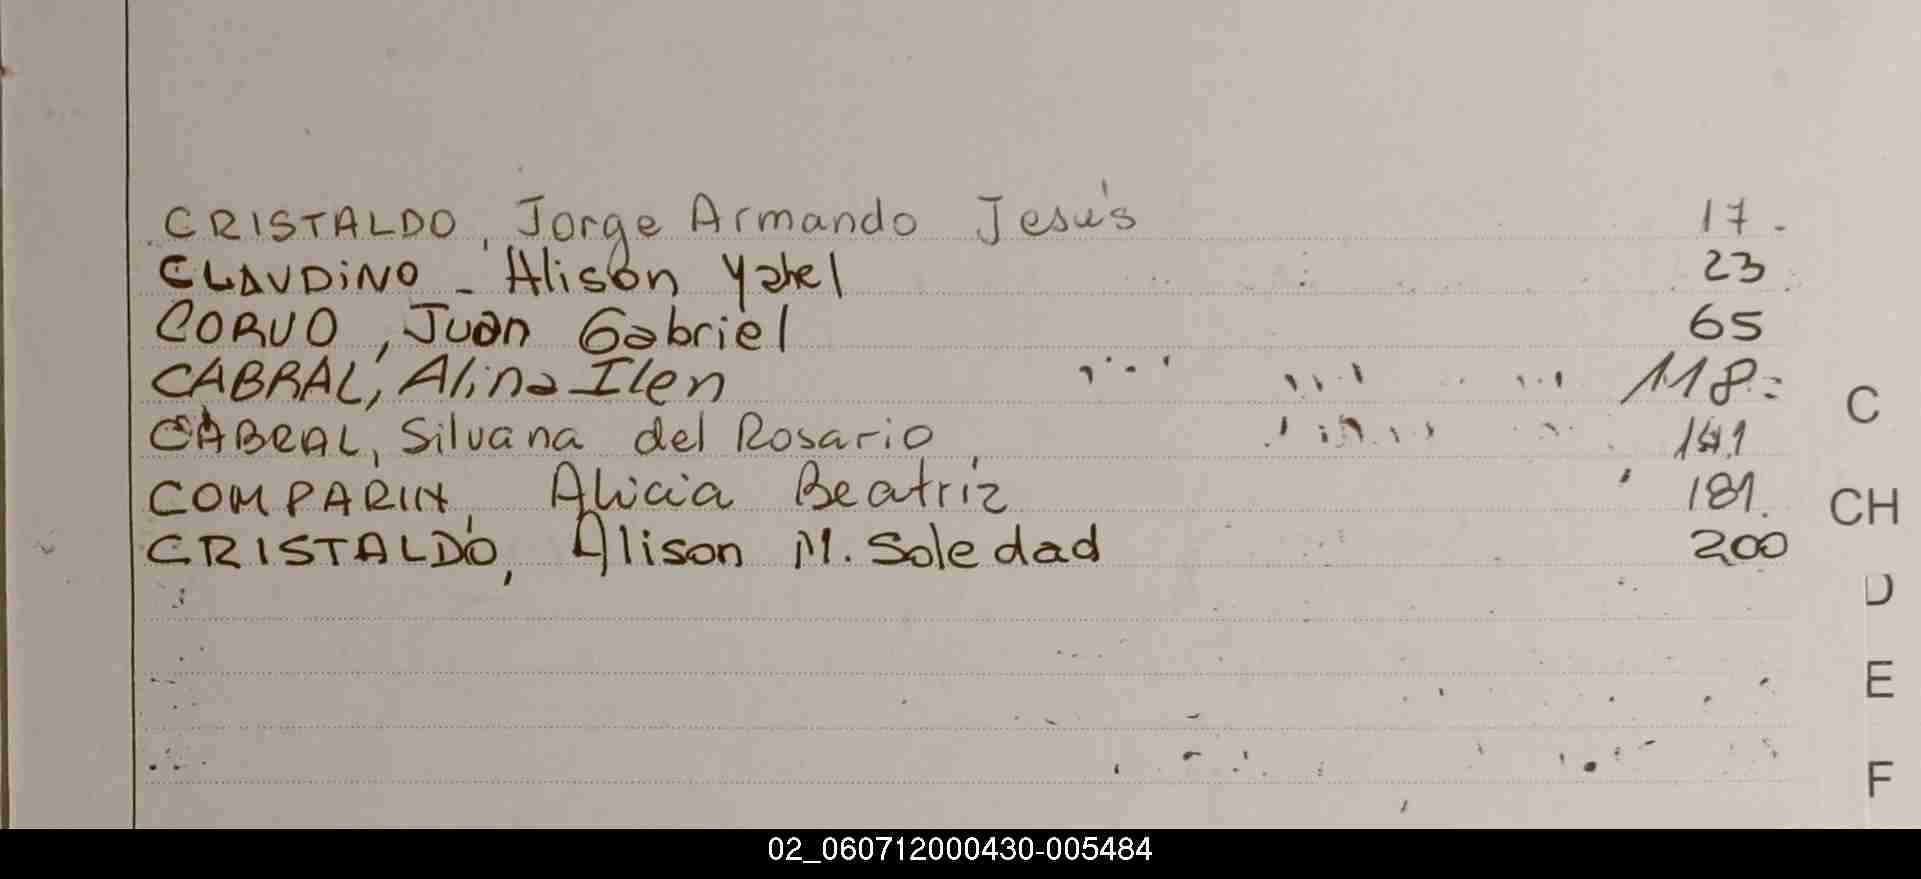 CRISTALDO, Jorge Armando Jesús 17.
CLAUDiNO - Alison Yatel 23
CORVO, Juan Gabriel 65
CABRAL, Alina Ilen 118
C
CABRAL, Silvana del Rosario 141
COMPARIN, Alicia Beatriz 181.
CH
CRISTALDO, Alison M. Soledad 200
D
E
F
02_060712000430-005484